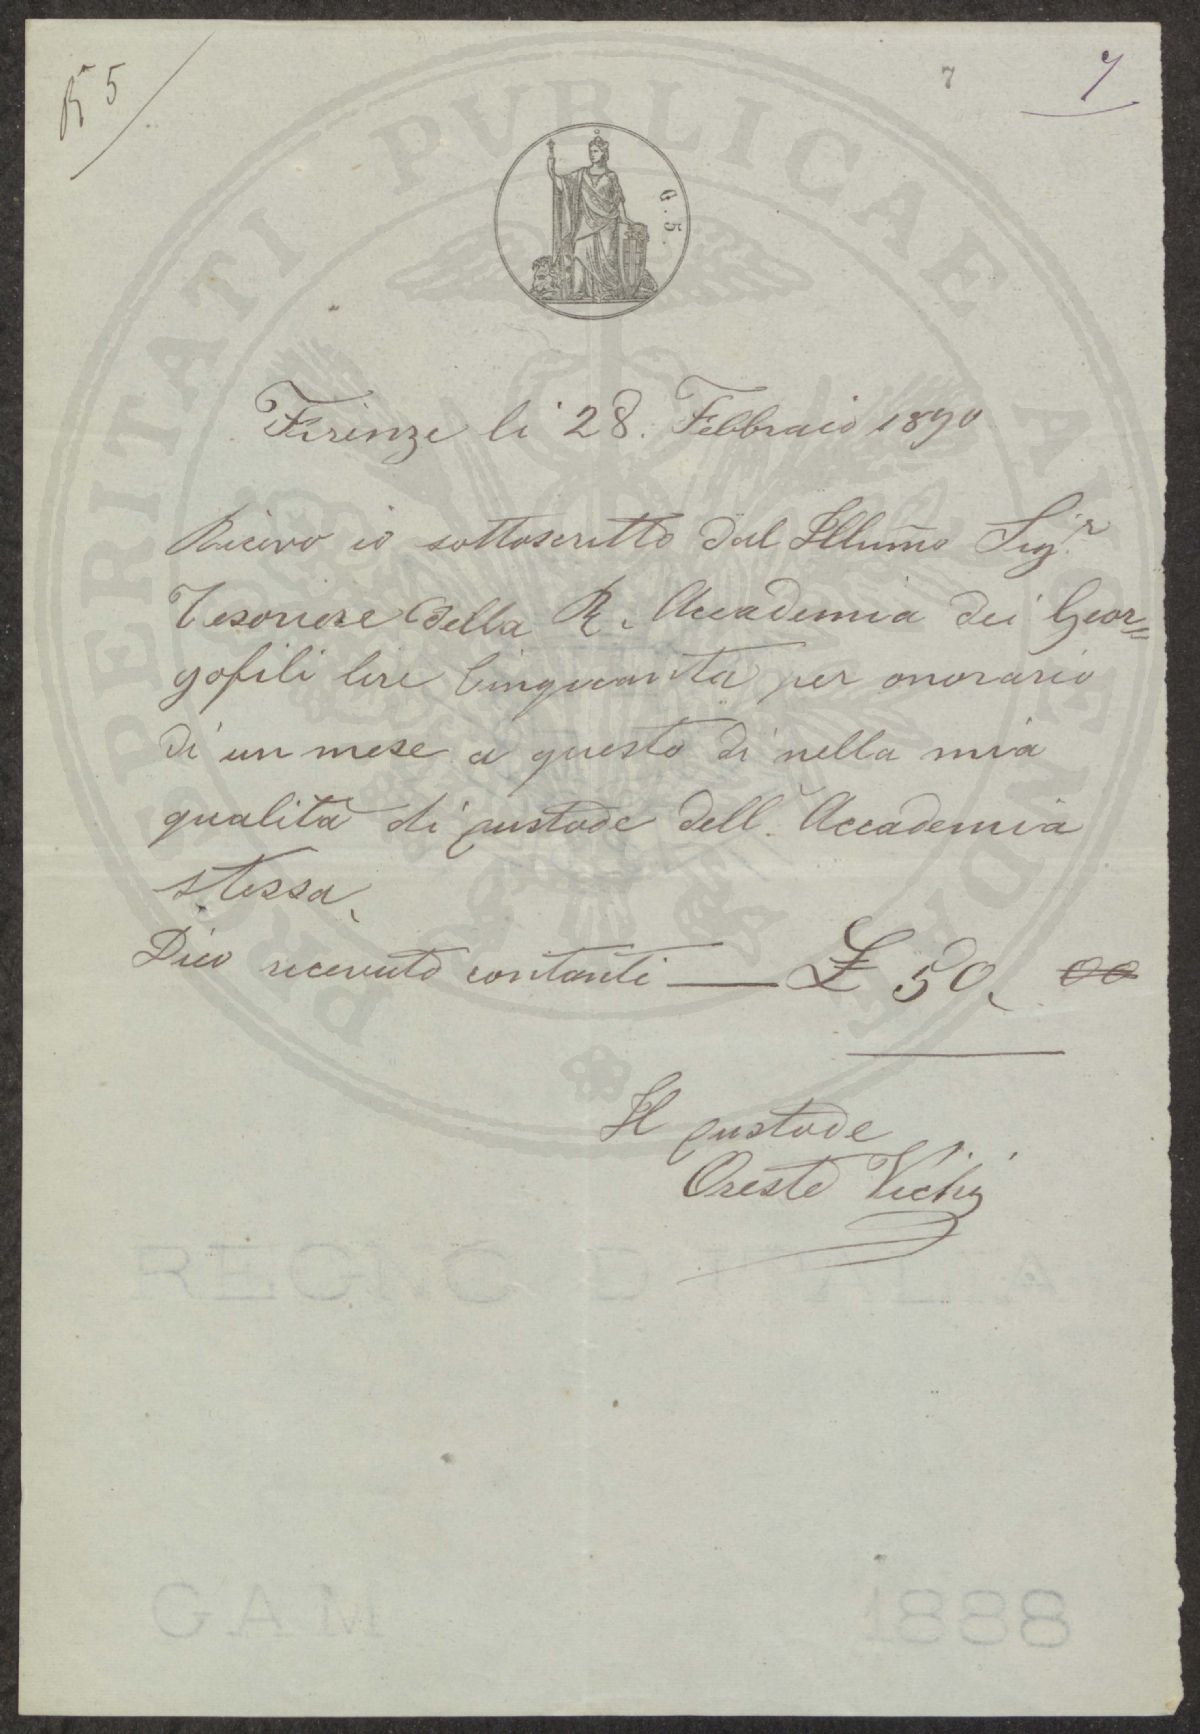 R 5
7
7
PROSPERITATI PVBLICAE AVGENDAE
G. 5.
Firenze li 28. Febbraio 1890
Ricevo io sottoscritto dal Illum̃o Sigr.
Tesoriere della R. Accademia dei Geor=
gofili lire Cinquanta per onorario
di un mese a questo di nella mia
qualità di custode dell'Accademia
stessa,
Dico ricevuto contanti — £ 50, 00
Il custode
Oreste Vichi
REGNO D'ITALIA
GAM 1888